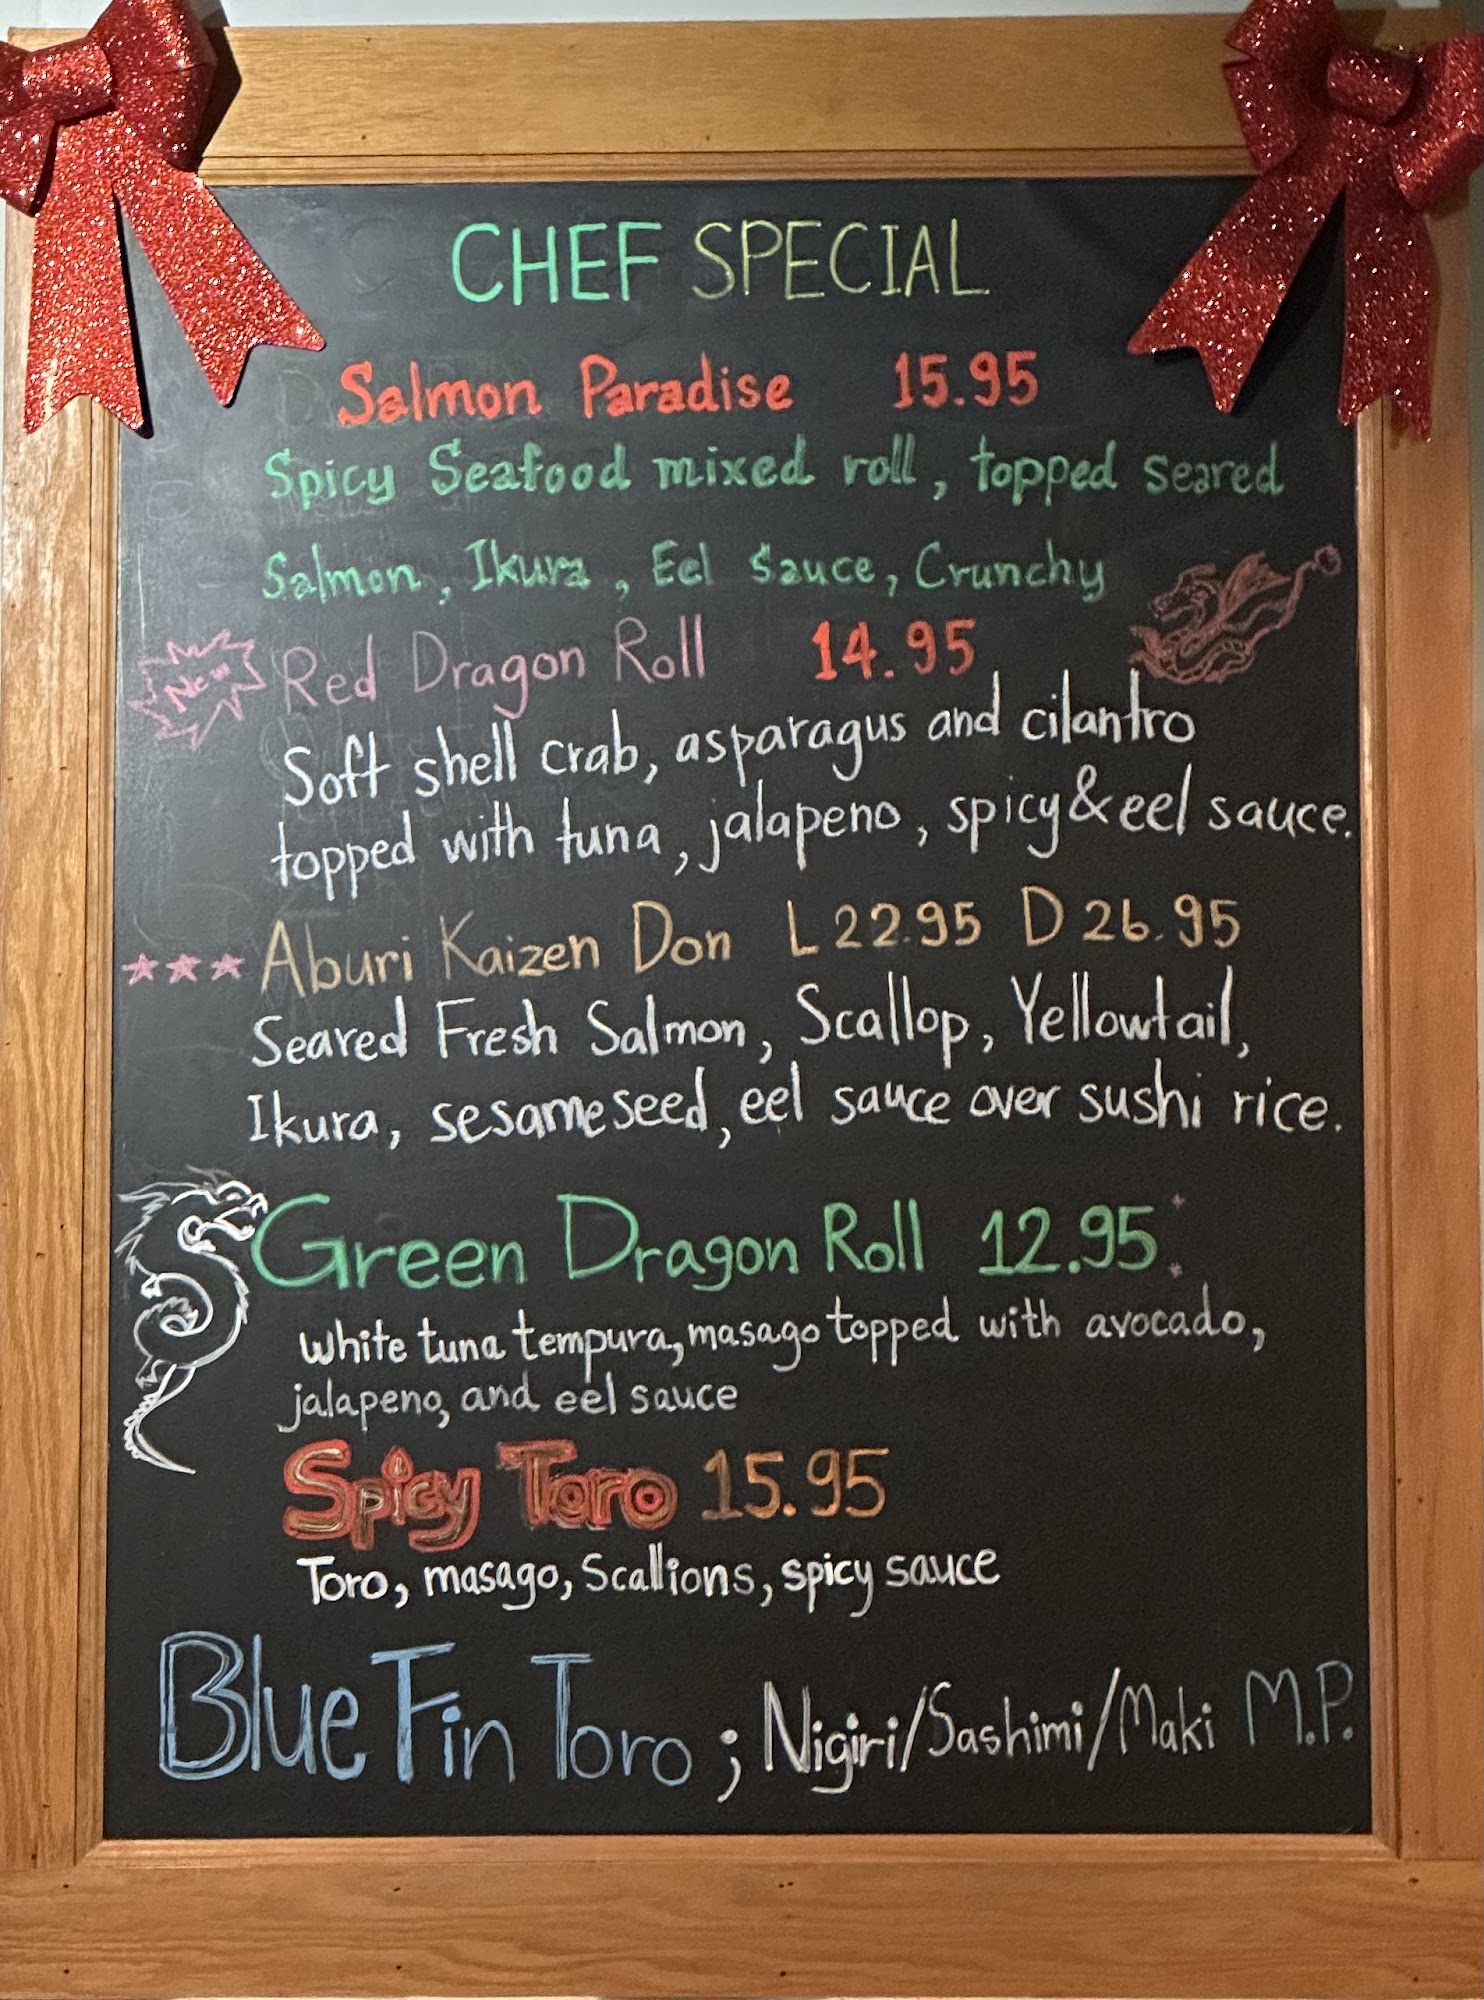 CHEF SPECIAL
Salmon Paradise 15.95
Spicy Seafood mixed roll, topped seared
Salmon, Ikura, Eel Sauce, Crunchy
New Red Dragon Roll 14.95
Soft shell crab, asparagus and cilantro
topped with tuna, jalapeno, spicy & eel sauce.
Aburi Kaizen Don L 22.95 D 26.95
Seared Fresh Salmon, Scallop, Yellowtail,
Ikura, sesame seed, eel sauce over sushi rice.
Green Dragon Roll 12.95
white tuna tempura, masago topped with avocado,
jalapeno, and eel sauce
Spicy Toro 15.95
Toro, masago, Scallions, spicy sauce
Blue Fin Toro ; Nigiri/Sashimi/Maki M.P.